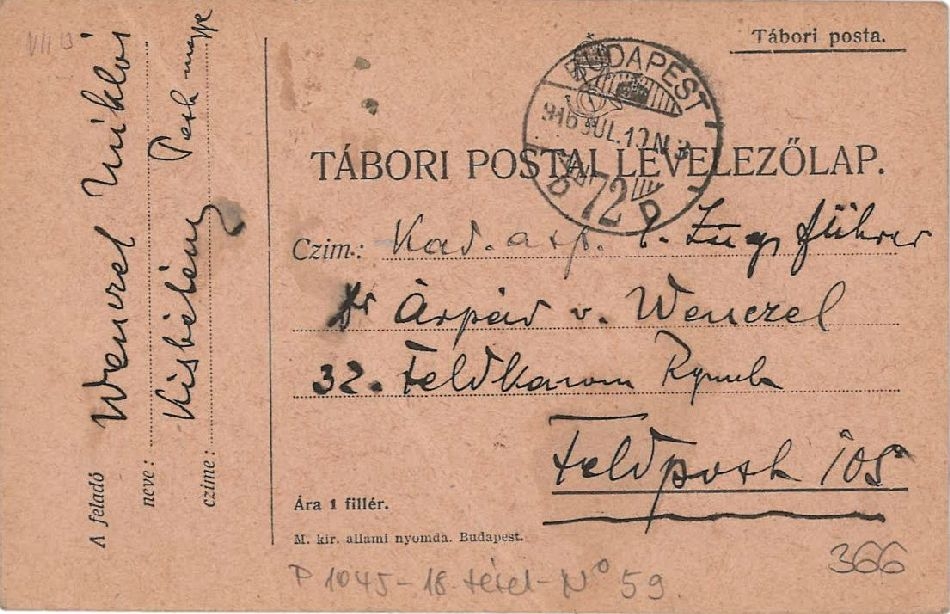 VII 13
Tábori posta.
BUDAPEST
916 JUL. 10 N 3
72
D D
TÁBORI POSTAI LEVELEZŐLAP.
Czim.: Kad. asp. t. Zugsführer
Dr Árpád v. Wenczel
32. Feldkanon Rgmnt
Feldpost 105
Ára 1 fillér.
M. kir. allami nyomda. Budapest.
A feladó
neve: Wenczel Miklós
czime: Kisbétény Pest megye
P 1045 - 18. tétel - No 59.
366